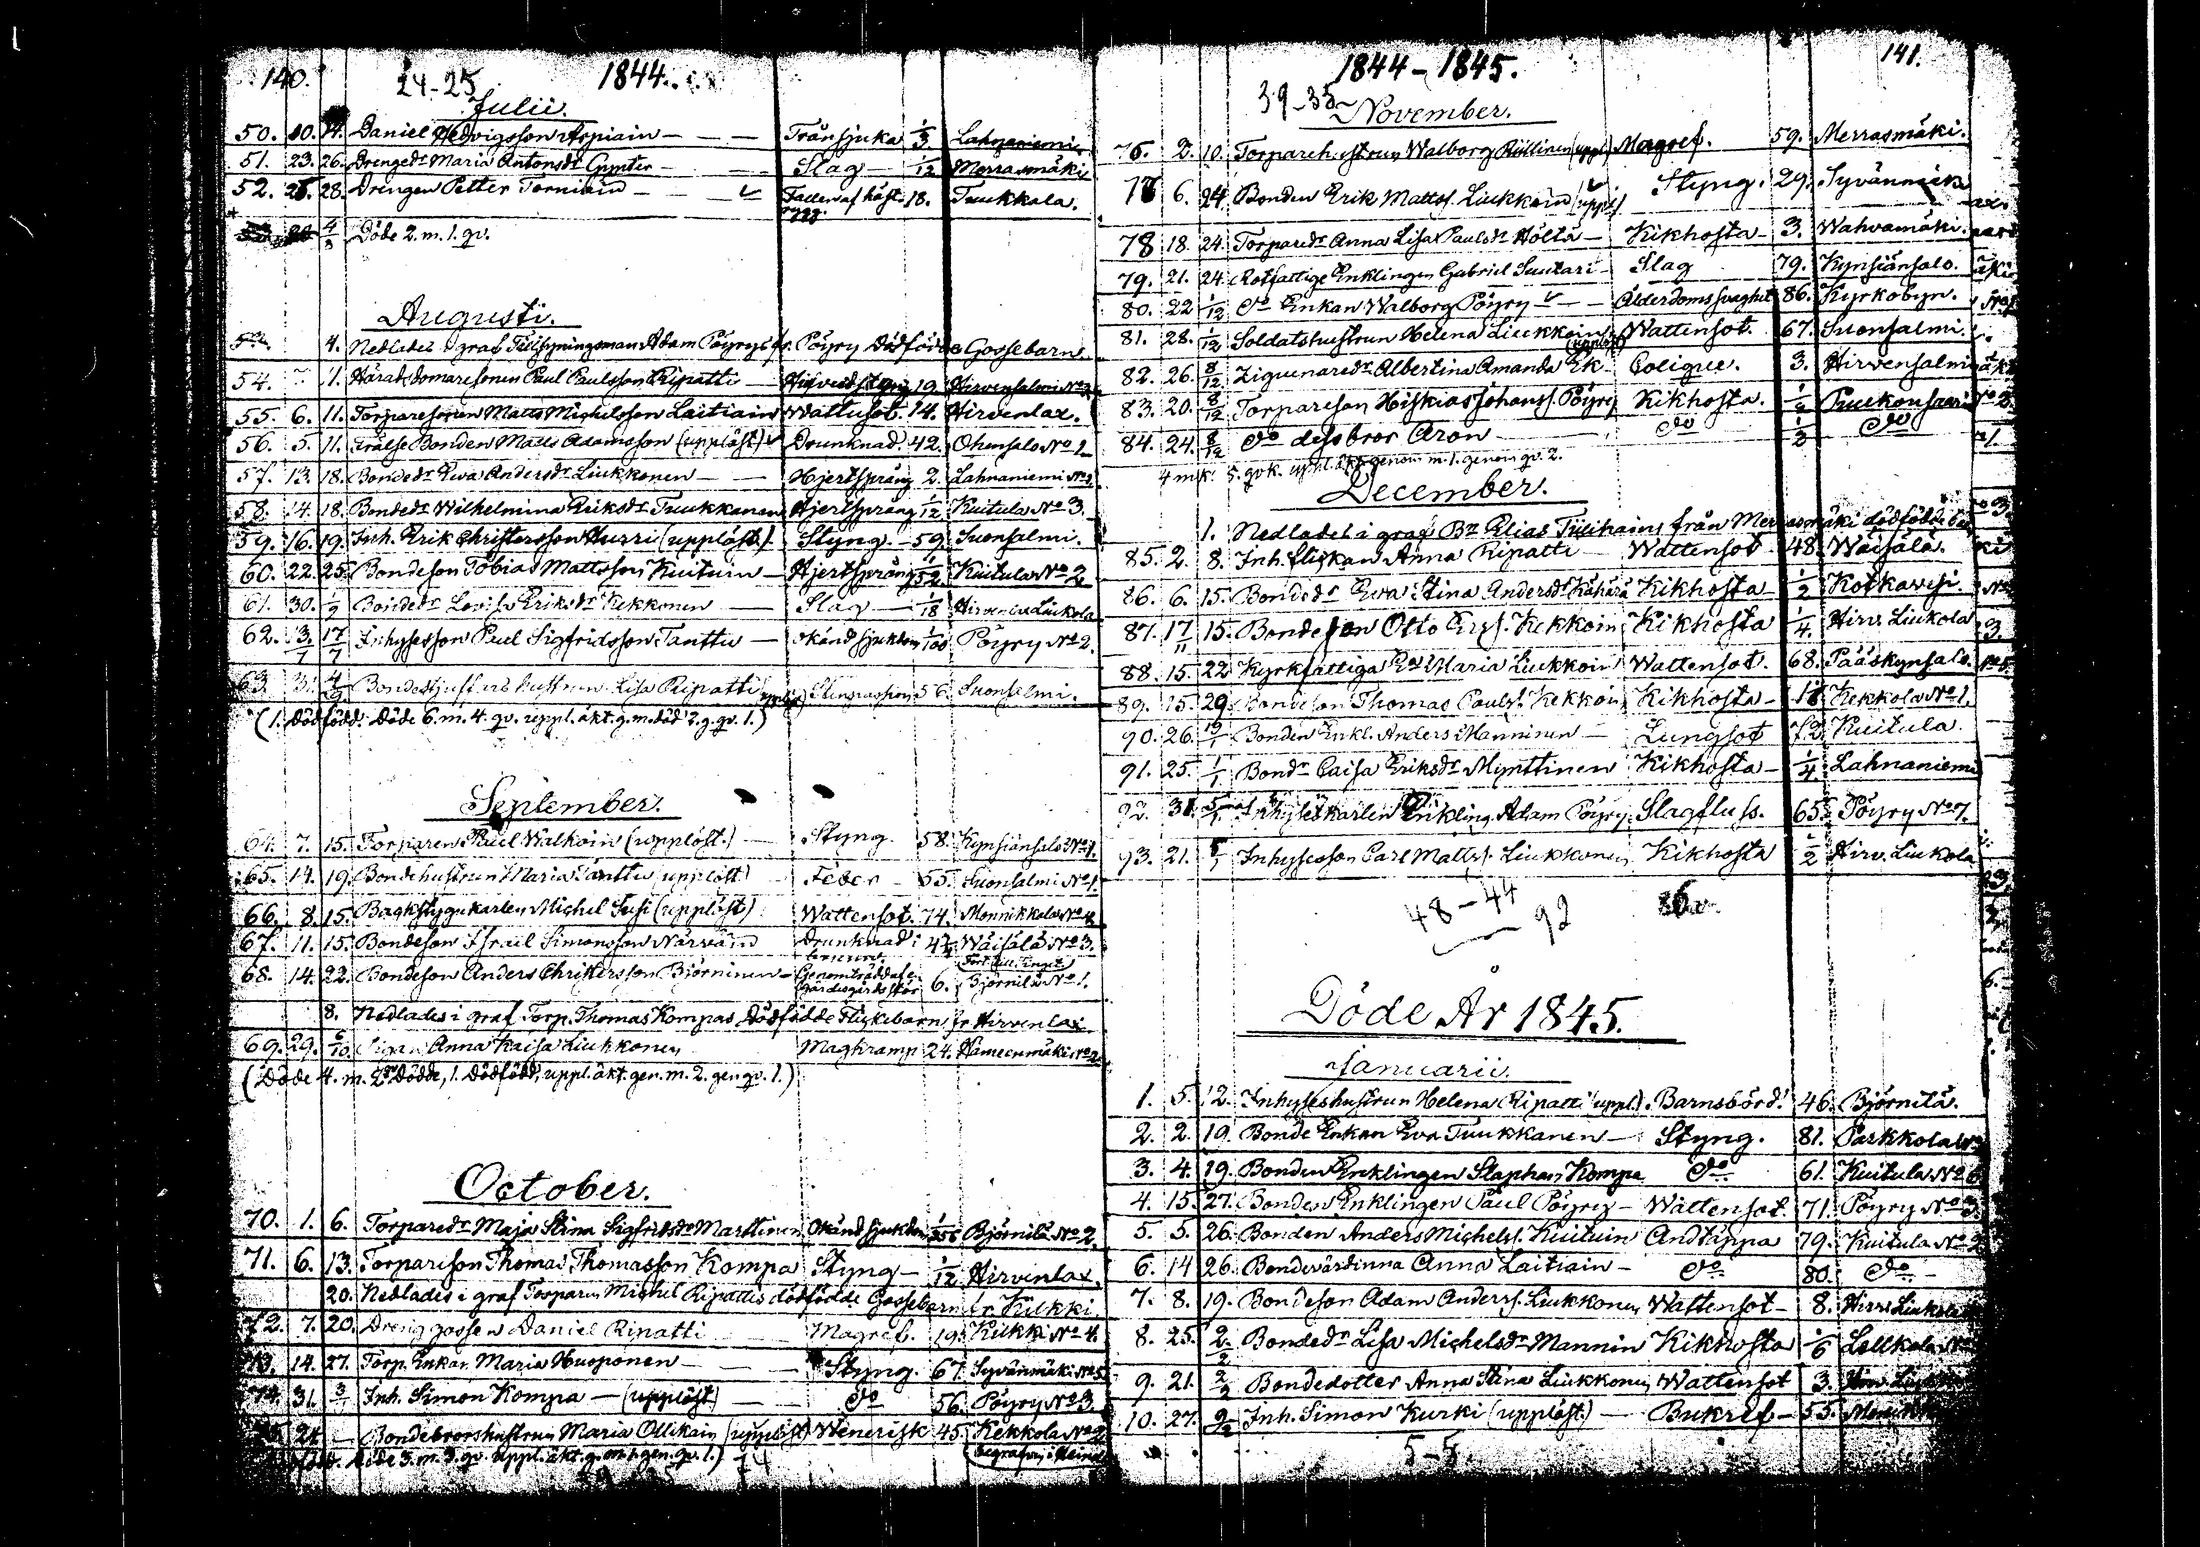 140. 24-25 1844.
Julii.
50. 10. 14. Daniel Hedvigsson Aspiain — Trånsjuka 1/3 Lahnaniemi
51. 23. 26. Drengedr Maria Antonsdr Gynter — Slag — 1/12 Merrasmäki
52. 25. 28. Drengen Petter Torniain — Fallen af häst- 18. Tuukkala.
rygg.
4/3 Döde 2. m. 1. qv.
Augusti.
4. Nedlades i graf Tillsyningsman Adam Pöyrys fr. Pöyry dödfödde Gossebarn
54. 11. Häradsdomaresonen Paul Paulsson Ripatti — 19. Hirvensalmi No
55. 6. 11. Torparesonen Matts Michelsson Laitiain Wattusot. 14. Hirvenlax.
56. 5. 11. Frälse Bonden Matts Adamsson (upplöst) Drunknad. 42. Ohensalo No 1.
57. 13. 18. Bondedr Eva Andersdr Liukkonen — Hjertsprång 2. Lahnaniemi No 2
58. 14. 18. Bondedr Wilhelmina Eriksdr Tuukkanen Hjertsprång 1/12 Kuitula No 3.
59. 16. 19. Inh. Erik Christersson Hurri (upplöst.) Styng. — 59. Suonsalmi.
60. 22. 25. Bondeson Tobias Mattsson Kuituin — Hjertsprång 1/52 Kuitula No 2
61. 30. 1/9 Bondedr Lovisa Eriksdr Kekkonen — Slag — 1/18 Hirven Liukola
62. 13/7 17/7 Inhysesson Paul Sigfridsson Tanttu — okänd sjukdom 1/100 Pöyry No 2.
63. 31. 4/9 Lisa Ripatti 56. Suonsalmi.
(1. Dödfödd. Döde 6. m. 4. qv. uppl. äkt. g. m. död 3. g. qv. 1.)
September.
64. 7. 15. Torparen Paul Walkoin (upplöst.) — Styng. 58. Kynsiänsalo No 1.
65. 14. 19. Bondehustrun Maria Tanttu (upplöst) Feber — 55. Suonsalmi No 1.
66. 8. 15. Backstugukarlen Michel Susi (upplöst) Wattensot. 74. Monnikkala No
67. 11. 15. Bondeson Israel Simonsson Närväin Drunknad i Wäisälä No 3.
68. 14. 22. Bondeson Anders Christersson Björninen — Genomträdd af e. 6. Björnilä No 1.
gärdesgårds stör
8. Nedlades i graf Torp. Thomas Kompas Dödfödde Flickebarn fr Hirvenlax
69. 29. 6/10. Pigan Anna Kaisa Liukkonen Magkramp 24. Hämeenmäki No 2.
(Döde 4. m. 2 Dödde, 1. Dödfödd, uppl. äkt. gen. m. 2. gen qv. 1.)
October.
70. 1. 6. Torparedr Maja Stina Sigfridsdr Marttinen Okänd sjukdom 1/356 Björnilä No 2.
71. 6. 13. Torpareson Thomas Thomasson Kompa Styng — 1/12 Hirvenlax.
20. Nedlades i graf Torparen Michel Ripattis dödfödde Gossebarn fr Kukki.
72. 7. 20. Dreng gossen Daniel Ripatti Magref. 19. Kukki No 4.
73. 14. 27. Torp. Enkan Maria Husponen — Styng. 67. Syvänmäki No 5
74. 31. 3/11 Inh. Simon Kompa — (upplöst) do 56. Pöyry No 3.
75. 24. — Bondebrorshustrun Maria Ollikain (upplöst) Wenerisk 45. Kekkola No 2
Döde 3. m. 3. qv. uppl. äkt. g. m. 1. gen. qv. 1.) 74 (begrafven i Heinä
1844 — 1845. 141.
39-35 November.
76. 2. 10. Torpareh.ustrun Walborg Rällinen (uppl) Magref. 59. Merrasmäki.
77 6. 24. Bonden Erik Mattss. Liukkoin (uppl) Styng. 29. Syvänmäk
78 18. 24. Torparedr Anna Lisa Paulsdr Höltä — Kikhosta — 3. Wahvamäki.
79. 21. 24. Rotfattige Enklingen Gabriel Suutari — Slag 79. Kynsiänsalo.
80. 22 1/12 do Enkan Walborg Pöyry — Ålderdomssvaghet 86. Kyrkobyn.
81. 28. 1/12 Soldatshustrun Helena Liukkoin (upplöst) Wattensot. 67. Suonsalmi.
82. 26. 8/12 Ziguenaredr Albertina Amanda Ek Colique. 3. Hirvensalmi
83. 20. 8/12 Torpareson Hiskias Johans. Pöyry Kikhosta. 1/2 Puukonsaari
84. 24. 8/12 do dess bror Aron — do 1/3 do
4 mk. 5. qvk. uppl. äkt. genom m. 1. genom qv. 2.
December.
1. Nedlades i graf Bn Elias Tiilikains från Merrasmäki dödfödde
85. 2. 8. Inh. flickan Anna Ripatti — Wattensot 48. Wäisälä.
86. 6. 15. Bondedr Eva Stina Andersdr Kähärä Kikhosta — 1/2 Kotkavesi
87. 17/11 15. Bondeson Otto Kekkoin Kikhosta 1/4. Hirv. Liukola
88. 15. 22. Kyrkfattiga En Maria Liukkoin Wattensot. 68. Pääskynsalo.
89. 15. 29. Bondeson Thomas Paulss. Kekkoin Kikhosta — Kekkola No 1.
90. 26. 19/1 Bonden Enkl. Anders Manninen — Lungsot 72 Kuitula.
91. 25. 1/1 Bondr Caisa Eriksdr Mynttinen Kikhosta — 1/4 Lahnaniemi
92. 31. 5/1 Inhyseskarlen Enkling. Adam Pöyry Slagfluss. 65. Pöyry No 7.
93. 21. 5/1 Inhysesson Carl Mattss. Liukkonen Kikhosta 1/2 Hirv. Liukola
48 — 44
92
Döde År 1845.
Januarii.
1. 5. 12. Inhyseshustrun Helena Ripatti (uppl.). Barnsbörd. 46. Björnilä.
2. 2. 19. Bonde Enkan Eva Tuukkanen — Styng. 81. Parkkola No
3. 4. 19. Bonden Enklingen Staphan Kompa do 61. Kuitula No 6
4. 15. 27. Bonden Enklingen Paul Pöyry — Wattensot. 71. Pöyry No 3.
5. 5. 26. Bonden Anders Michelss. Kuituin Andtäppa 79. Kuitula No 2
6. 14 26. Bondevärdinna Anna Laitiain — do 80. do —
7. 8. 19. Bondeson Adam Anderss. Liukkonen Wattensot — 8. Hirv. Liukola
8. 25. 2/2 Bondedr Lisa Michelsdr Mannin Kikhosta 1/6 Lellkola No
9. 21. 2/2 Bondedotter Anna Stina Liukkonen Wattensot 3. Hirv. Liuk
10. 27. 9/2 Inh. Simon Kurki (upplöst.) — Bukref — 55.
5-5.